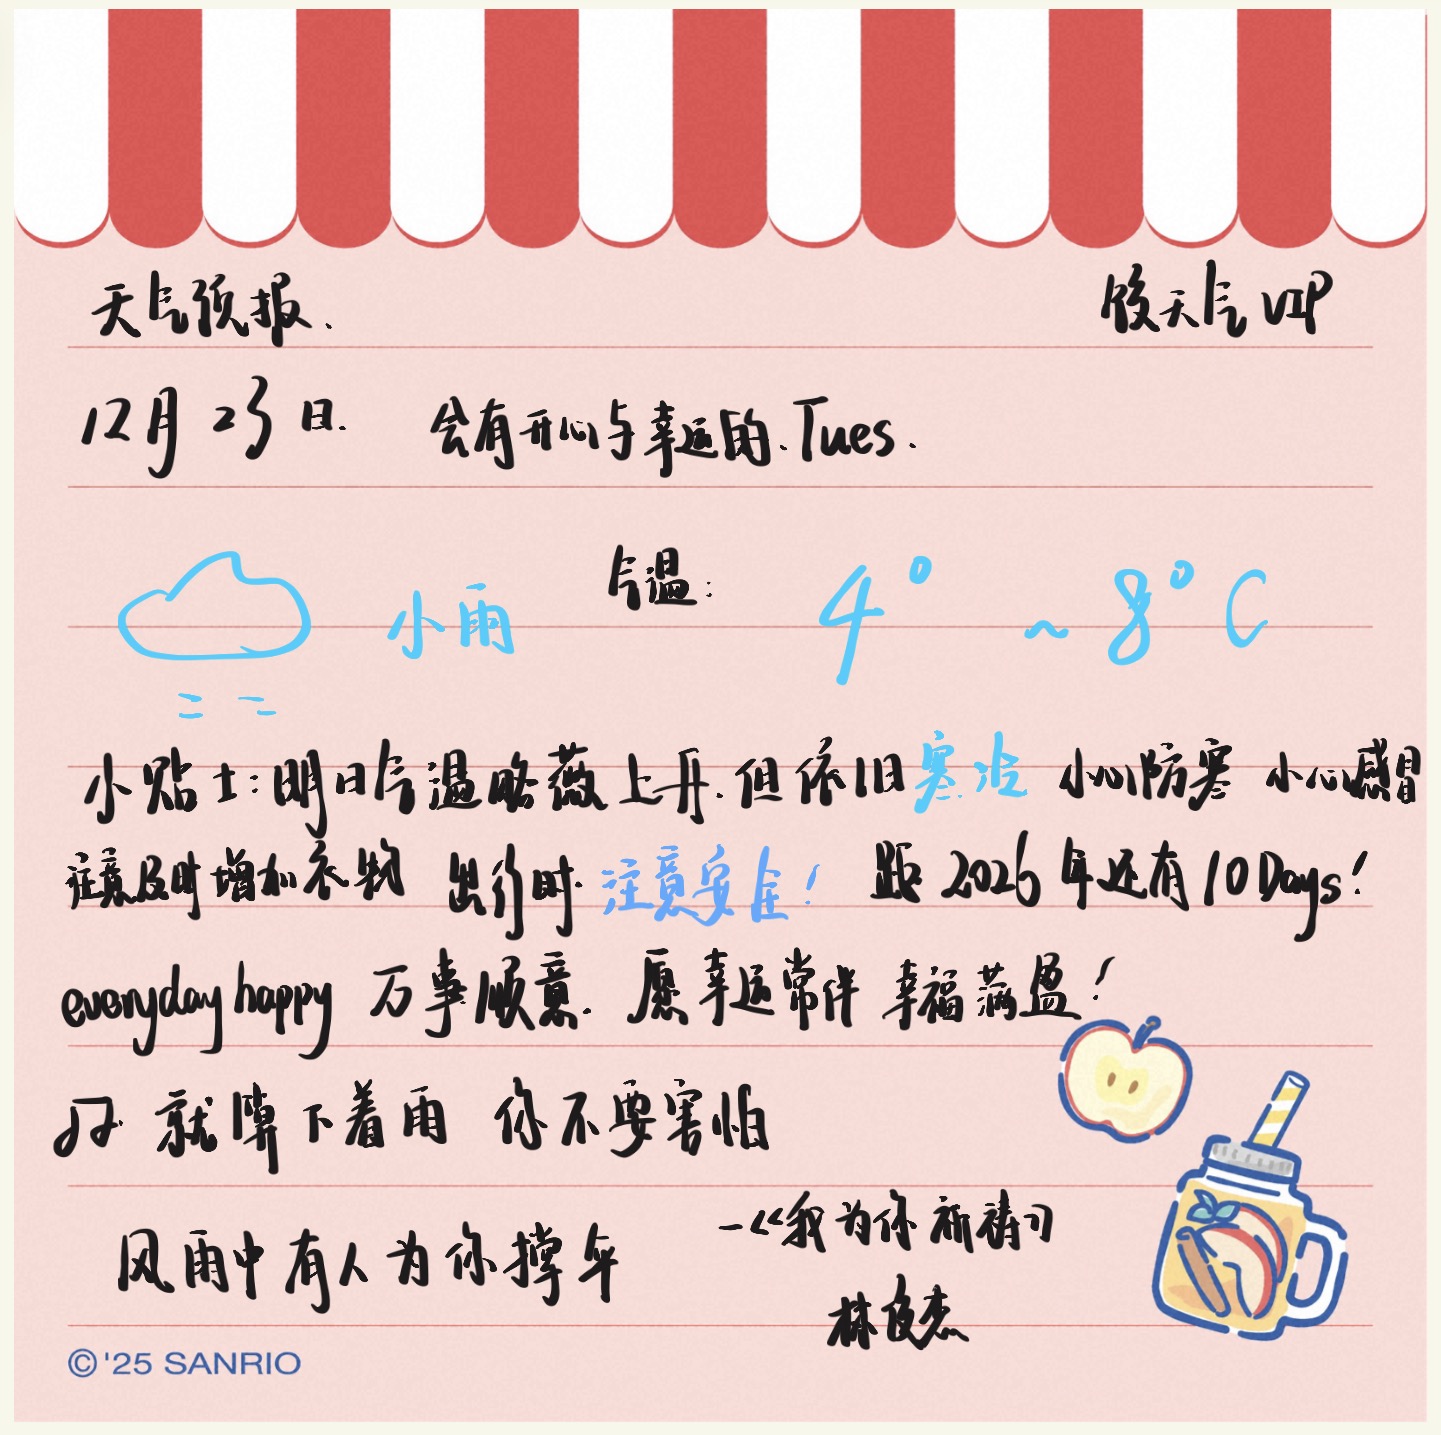 天气预报. 候天气VIP
12月23日. 会有开心与幸运的.Tues.
小雨 气温: 4° ~8°C
小贴士:明日气温略微上升.但依旧寒冷 小心防寒 小心感冒
注意及时增加衣物 出行时 注意安全! 距2026年还有10Days!
everyday happy 万事顺意. 愿幸运常伴 幸福满盈!
♫ 就算下着雨 你不要害怕
风雨中有人为你撑伞 —《我为你祈祷》
林俊杰
©'25 SANRIO